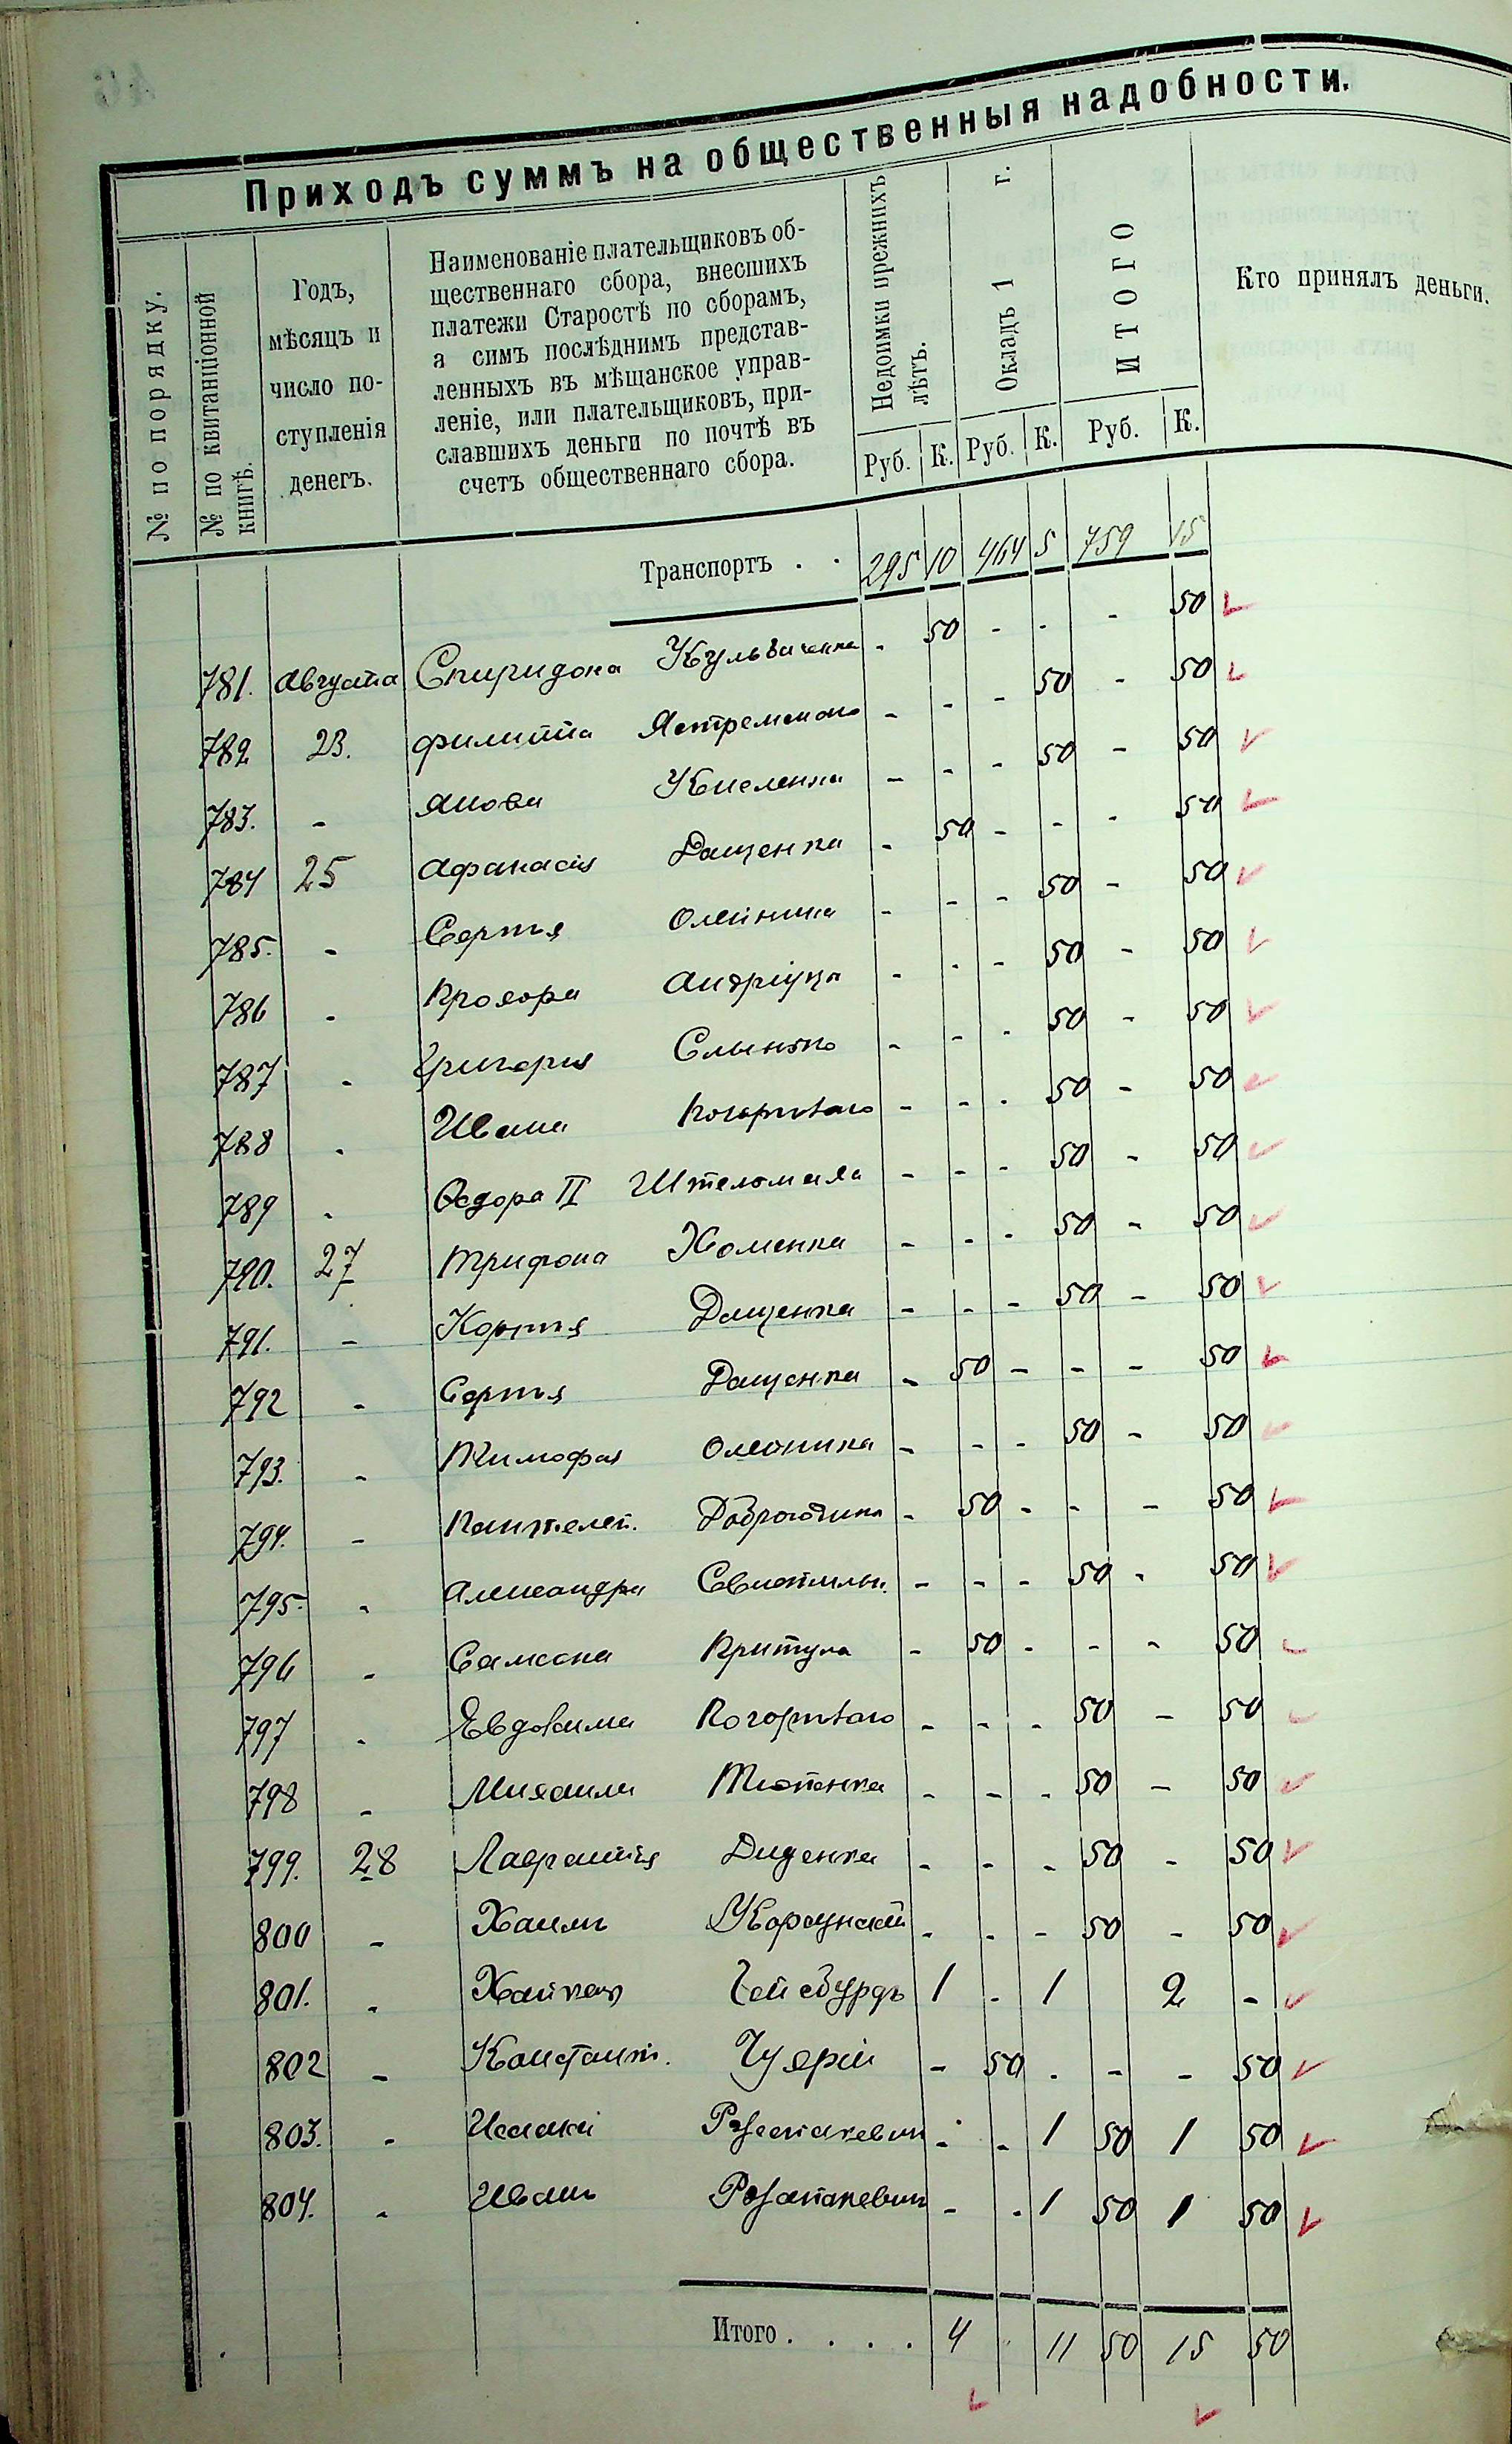 Приходъ суммъ на общественныя надобности.
№ по порядку.
№ по квитанціонной книгѣ.
Годъ,
мѣсяцъ и
число по-
ступленія
денегъ.
Наименованіе плательщиковъ об-
щественнаго сбора, внесшихъ
платежи Старостѣ по сборамъ,
а симъ послѣднимъ представ-
ленныхъ въ мѣщанское управ-
леніе, или плательщиковъ, при-
славшихъ деньги по почтѣ въ
счетъ общественнаго сбора.
Недоимки прежнихъ лѣтъ.
Окладъ 1 г.
ИТОГО
Кто принялъ деньги.
Руб. К. Руб. К. Руб. К.
Транспортъ . . 295 10 464 5 759 15
781. Августа Спиридона - 50 - - - 50
782 23. Филиппа Ястремскаго - - - 50 - 50
783. - Якова Киселенка - - - 50 - 50
784 25 Афанасія Дащенка - 50 - - - 50
785. - Сергѣя Олейника - - - 50 - 50
786 - Прохора Андріуца - - - 50 - 50
787 - Григорія Слынько - - - 50 - 50
788 - Ивана Погорѣлаго - - - 50 - 50
789 - Ѳедора II Штеломаха - - - 50 - 50
790. 27 Трифона Хоменка - - - 50 - 50
791. - Корнѣя Дащенка - - - 50 - 50
792 - Сергѣя Дащенка - 50 - - - 50
793. - Тимофея Олейника - - - 50 - 50
794. - Пантелей. - 50 - - - 50
795. - Александра - - - 50 - 50
796 - Самсона Притула - 50 - - - 50
797 - Евдокима Погорѣлаго - - - 50 - 50
798 - Михаила Тютенка - - - 50 - 50
799. 28 Лаврентія Диденка - - - 50 - 50
800 - Хаимъ Корсунскій - - - 50 - 50
801. - 1 - 1 2 -
802 - Константин. - 50 - - - 50
803. - Исаакій - - 1 50 1 50
804. - Иванъ - - 1 50 1 50
Итого . . . . 4 11 50 15 50